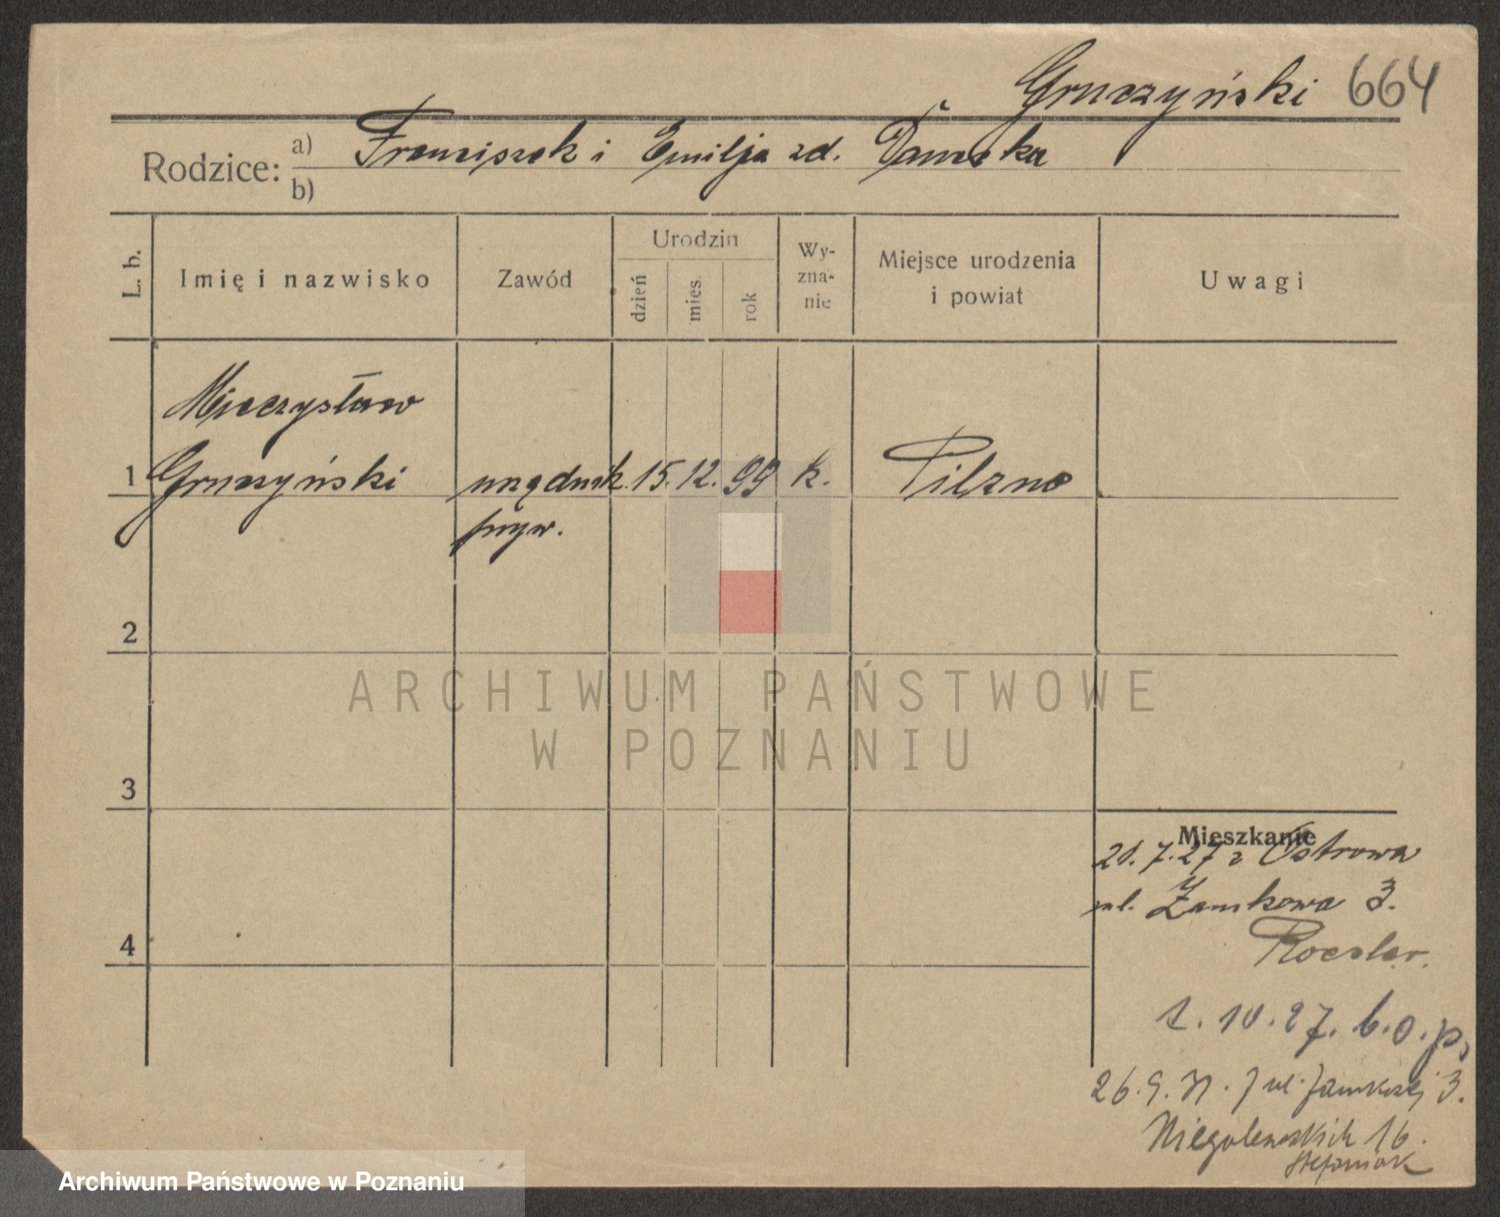 Gruszyński 664
Rodzice: a) Franciszek i Emilja zd.
b)
L. b.
Imię i nazwisko
Zawód
Urodzin
dzień
mies.
rok
Wy-
zna-
nie
Miejsce urodzenia
i powiat
Uwagi
Mieczysław
1 Gruszyński urzędnik 15. 12. 99 k. Pilzno
pryw.
2
ARCHIWUM PAŃSTWOWE
W POZNANIU
3
Mieszkanie
20.7.27 z Ostrowa
4
ul. Zamkowa 3.
Roesler.
1.10.27. b.o.p.
26.9. ul. 3.
Niegolewskich 16.
Stefaniak
Archiwum Państwowe w Poznaniu